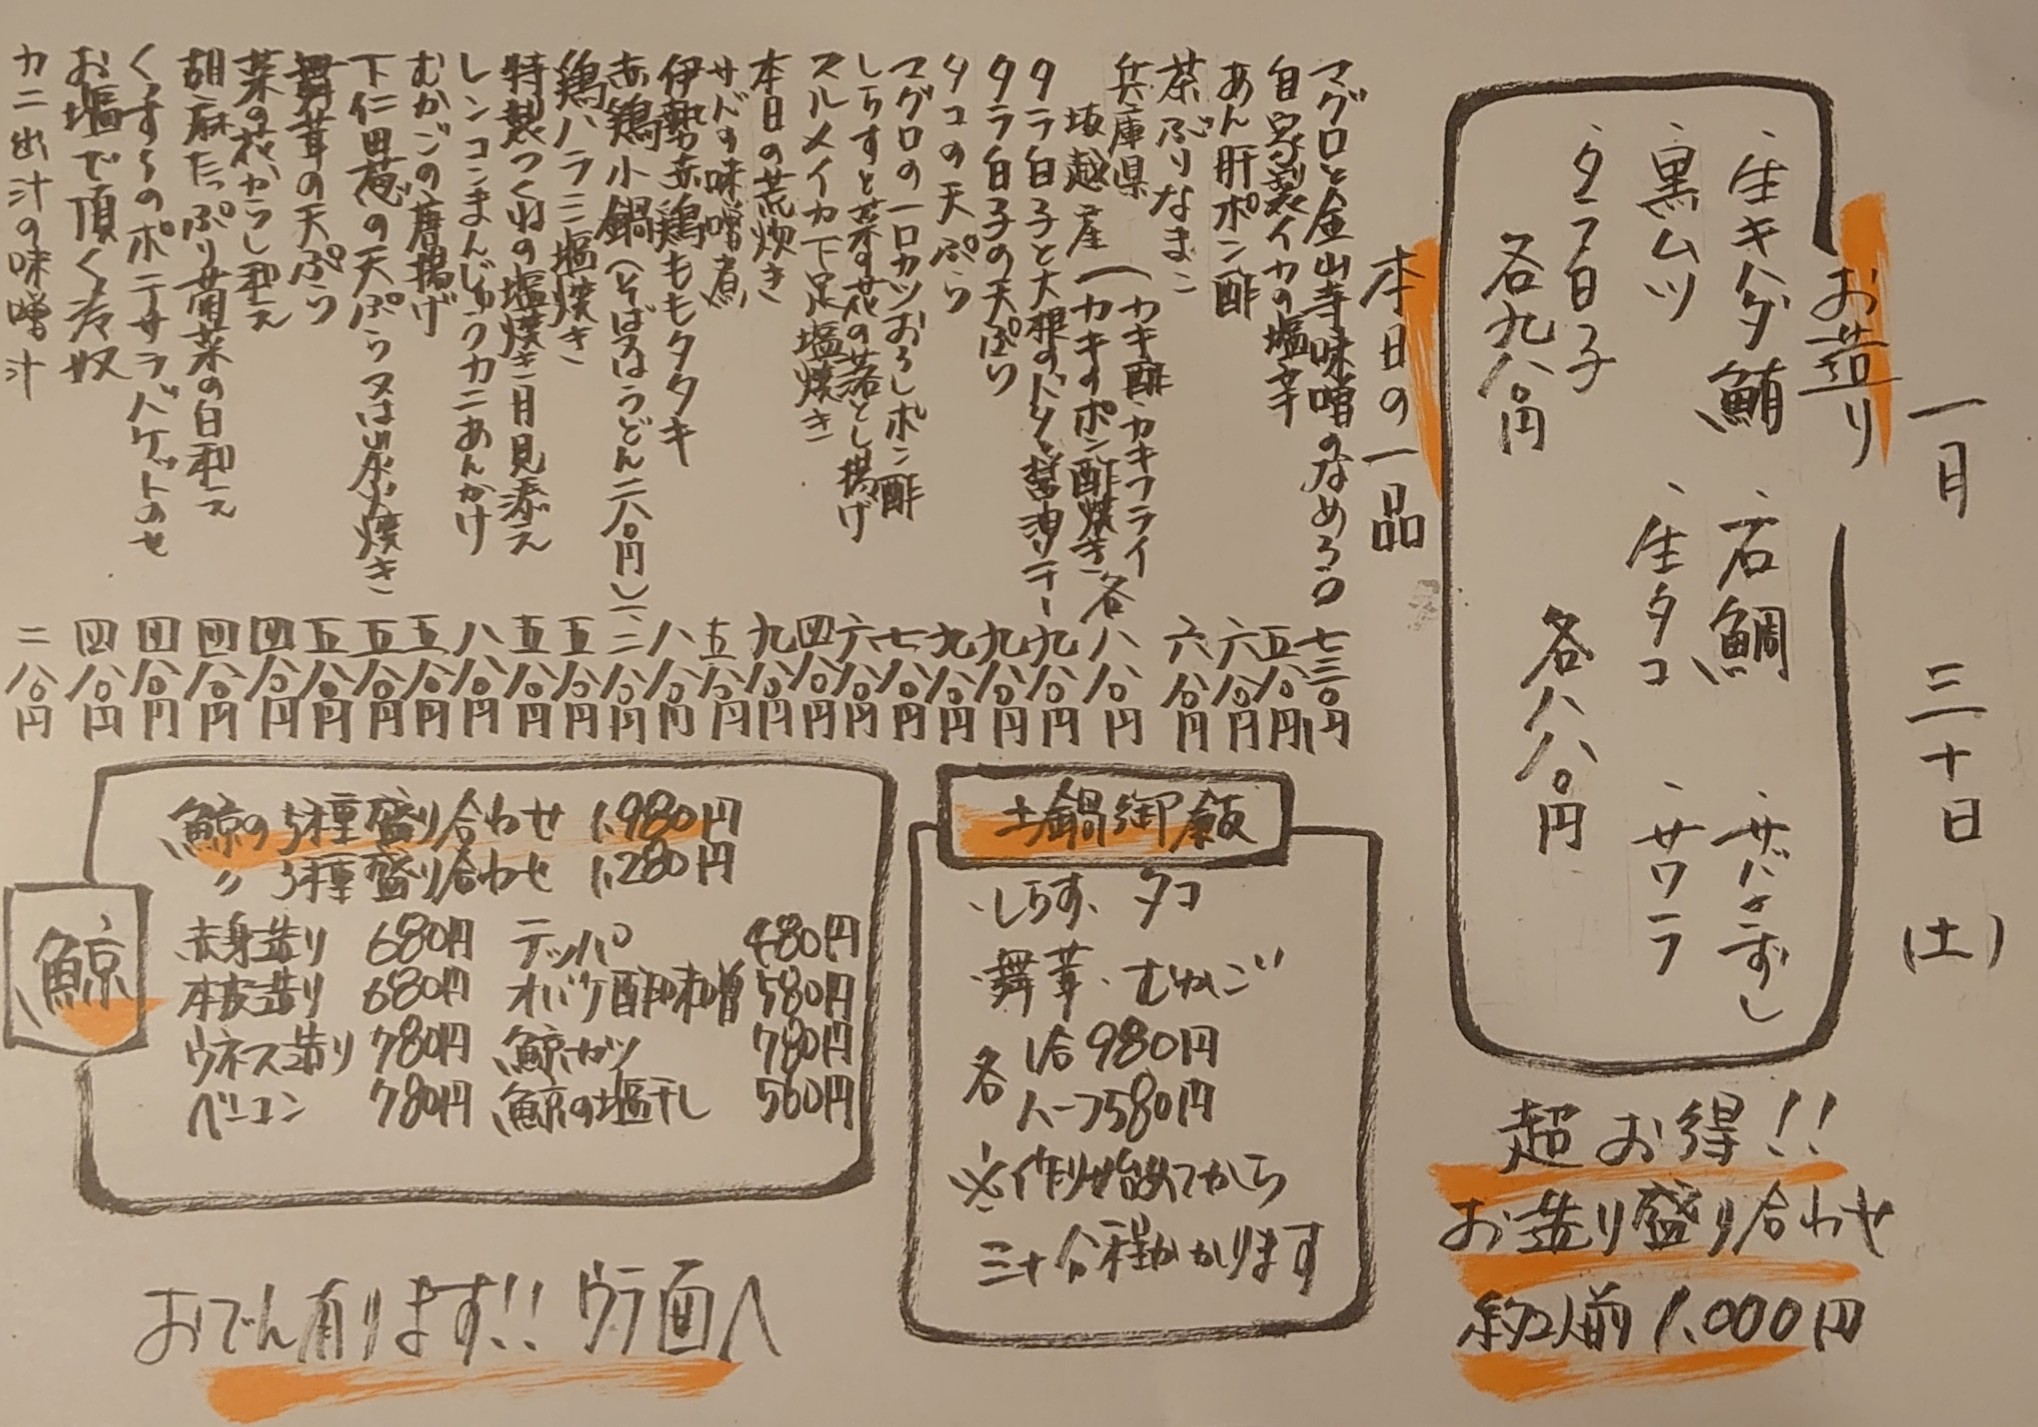 一月 三十日 (土)
お造り
・生キハダ鮪 ・石鯛 ・サバきずし
・黒ムツ ・生タコ ・サワラ
・タラ白子
各九八〇円 各八八〇円
超お得!!
お造り盛り合わせ
約2人前 1,000円
本日の一品
マグロと金山寺味噌のなめろう 七三〇円
自家製イカの塩辛 五八〇円
あん肝ポン酢 六八〇円
茶ぶりなまこ 六八〇円
兵庫県
坂越産(カキ酢・カキフライ
カキのポン酢焼き 各八八〇円
タラ白子と大根のバター醤油ソテー 九八〇円
タラ白子の天ぷら 九八〇円
タコの天ぷら 九八〇円
マグロの一口カツおろしポン酢 七八〇円
しらすと菜の花の落とし揚げ 六八〇円
スルメイカ下足塩焼き 四八〇円
本日の荒炊き 九八〇円
サバの味噌煮 五八〇円
伊勢赤鶏ももタタキ 八八〇円
赤鶏小鍋(そば又はうどん二八〇円) 一、二八〇円
鶏ハラミ塩焼き 五八〇円
特製つくねの塩焼き 月見添え 五八〇円
レンコンまんじゅうカニあんかけ 八八〇円
むかごの唐揚げ 五八〇円
下仁田葱の天ぷら又は炭火焼き 五八〇円
舞茸の天ぷら 五八〇円
菜の花からし和え 四八〇円
胡麻たっぷり菊菜の白和え 四八〇円
くずし のポテサラバゲットのせ 四八〇円
お塩で頂く冷奴 四八〇円
カニ出汁の味噌汁 二八〇円
土鍋御飯
・しらす・タコ
・舞茸・むかご
各 1合 980円
ハーフ 580円
※作り始めてから
三十分程かかります
鯨
鯨の5種盛り合わせ 1,980円
〃 3種盛り合わせ 1,280円
赤身造り 680円 テッパ 480円
本皮造り 680円 オバケ酢味噌 580円
ウネス造り 780円 鯨カツ 780円
ベーコン 780円 鯨の塩干し 560円
おでん有ります!! ウラ面へ